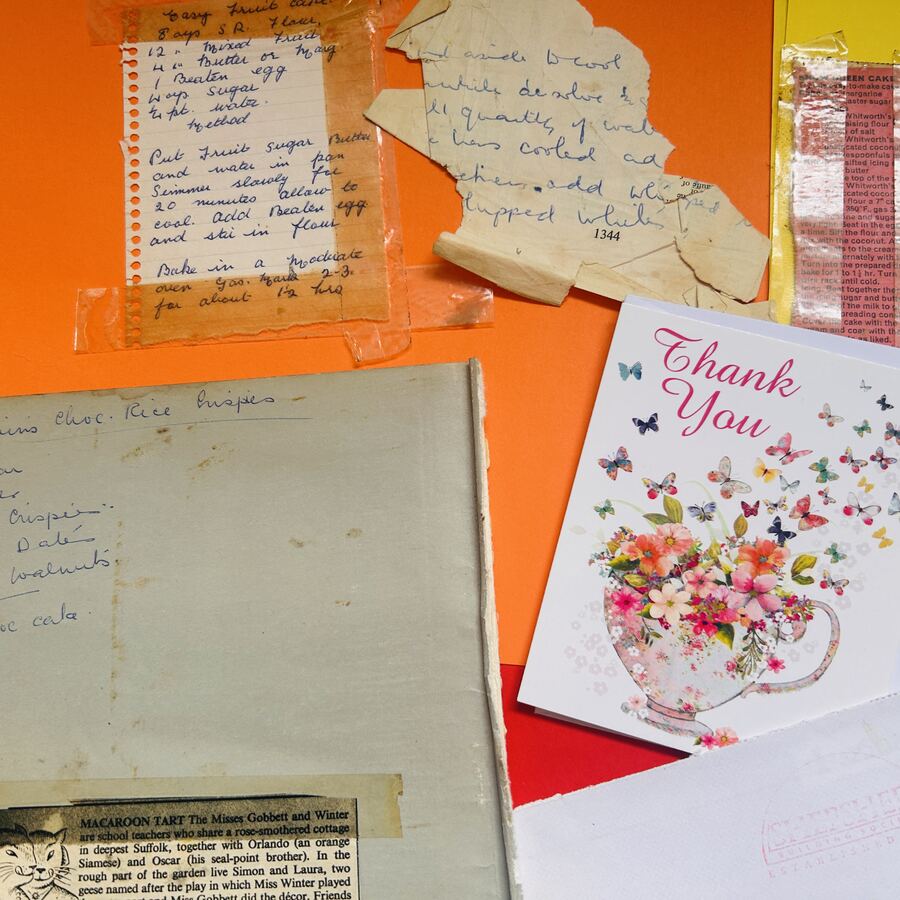 Easy Fruit cake
8 ozs S.R. Flour,
12 " Mixed Fruit
4 " Butter or Marg
1 Beaten egg
4 ozs sugar
¼ pt. water.
Method
Put Fruit sugar Butter
and water in pan
Simmer slowly for
20 minutes allow to
cool. add Beaten egg
and stir in flour
Bake in a Moderate
oven Gas. Mark 2-3.
for about 1½ hrs
aside to cool
while desolve
quantity of
has cooled ad
add whipped
whites
1344
QUEEN CAKE
easy-to-make
margarine
caster sugar
Whitworth's
raising flour
of salt
Whitworth's
coconut
sifted icing
butter
top of the
Whitworth's
coconut
flour a 7"
350°F, gas 3
and sugar
Beat in the egg
a time. Sift the flour and
with the coconut. A
to the cream
alternately with
Turn into the prepared
bake for 1 to 1¼ hr. Turn
rack until cold.
Beat together the
sugar and
the milk to
spreading
Cover the cake with the
and coat with the
as liked.
Thank
You
Choc. Rice Crispies
Crispies
Dates
Walnuts
MACAROON TART The Misses Gobbett and Winter
are school teachers who share a rose-smothered cottage
in deepest Suffolk, together with Orlando (an orange
Siamese) and Oscar (his seal-point brother). In the
rough part of the garden live Simon and Laura, two
geese named after the play in which Miss Winter played
and Miss Gobbett did the décor. Friends